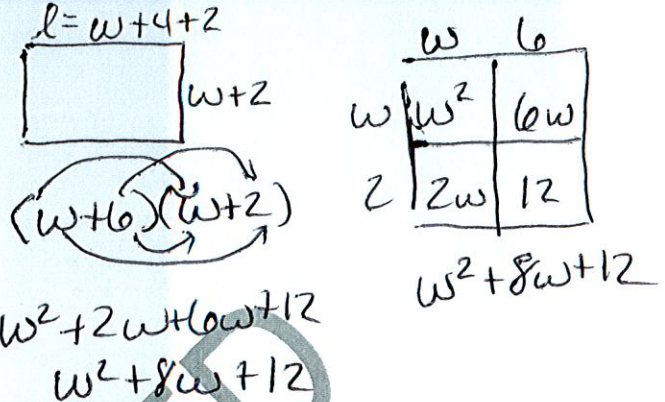 l = w+4+2
w+2
(w+6)(w+2)
w²+2w+6w+12
w²+8w+12
w 6
w w² 6w
2 2w 12
w²+8w+12